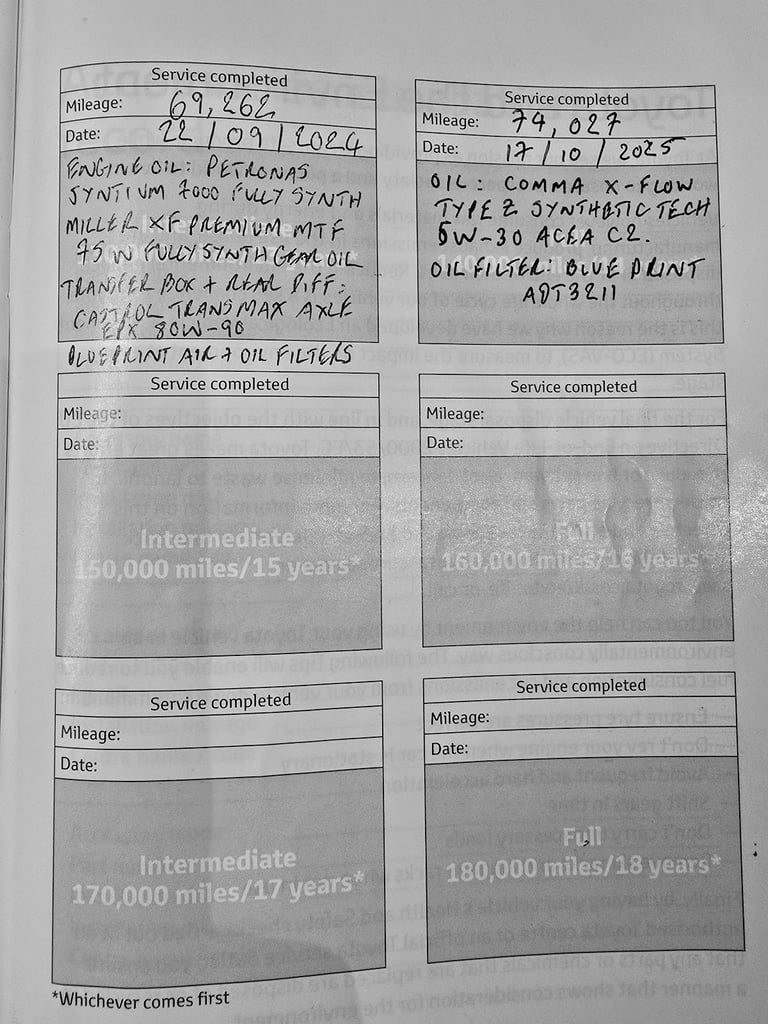 Service completed
Mileage: 69,262
Date: 22/09/2024
ENGINE OIL: PETRONAS
SYNTIUM 7000 FULLY SYNTH
MILLER XF PREMIUM MTF
75W FULLY SYNTH GEAR OIL
TRANSFER BOX + REAR DIFF:
CASTROL TRANSMAX AXLE
EPX 80W-90
BLUEPRINT AIR + OIL FILTERS
Service completed
Mileage: 74,027
Date: 17/10/2025
OIL: COMMA X-FLOW
TYPE Z SYNTHETIC TECH
5W-30 ACEA C2.
OIL FILTER: BLUE PRINT
ADT3211
Service completed
Mileage:
Date:
Intermediate
150,000 miles/15 years*
Service completed
Mileage:
Date:
Full
160,000 miles/16 years*
Service completed
Mileage:
Date:
Intermediate
170,000 miles/17 years*
Service completed
Mileage:
Date:
Full
180,000 miles/18 years*
*Whichever comes first